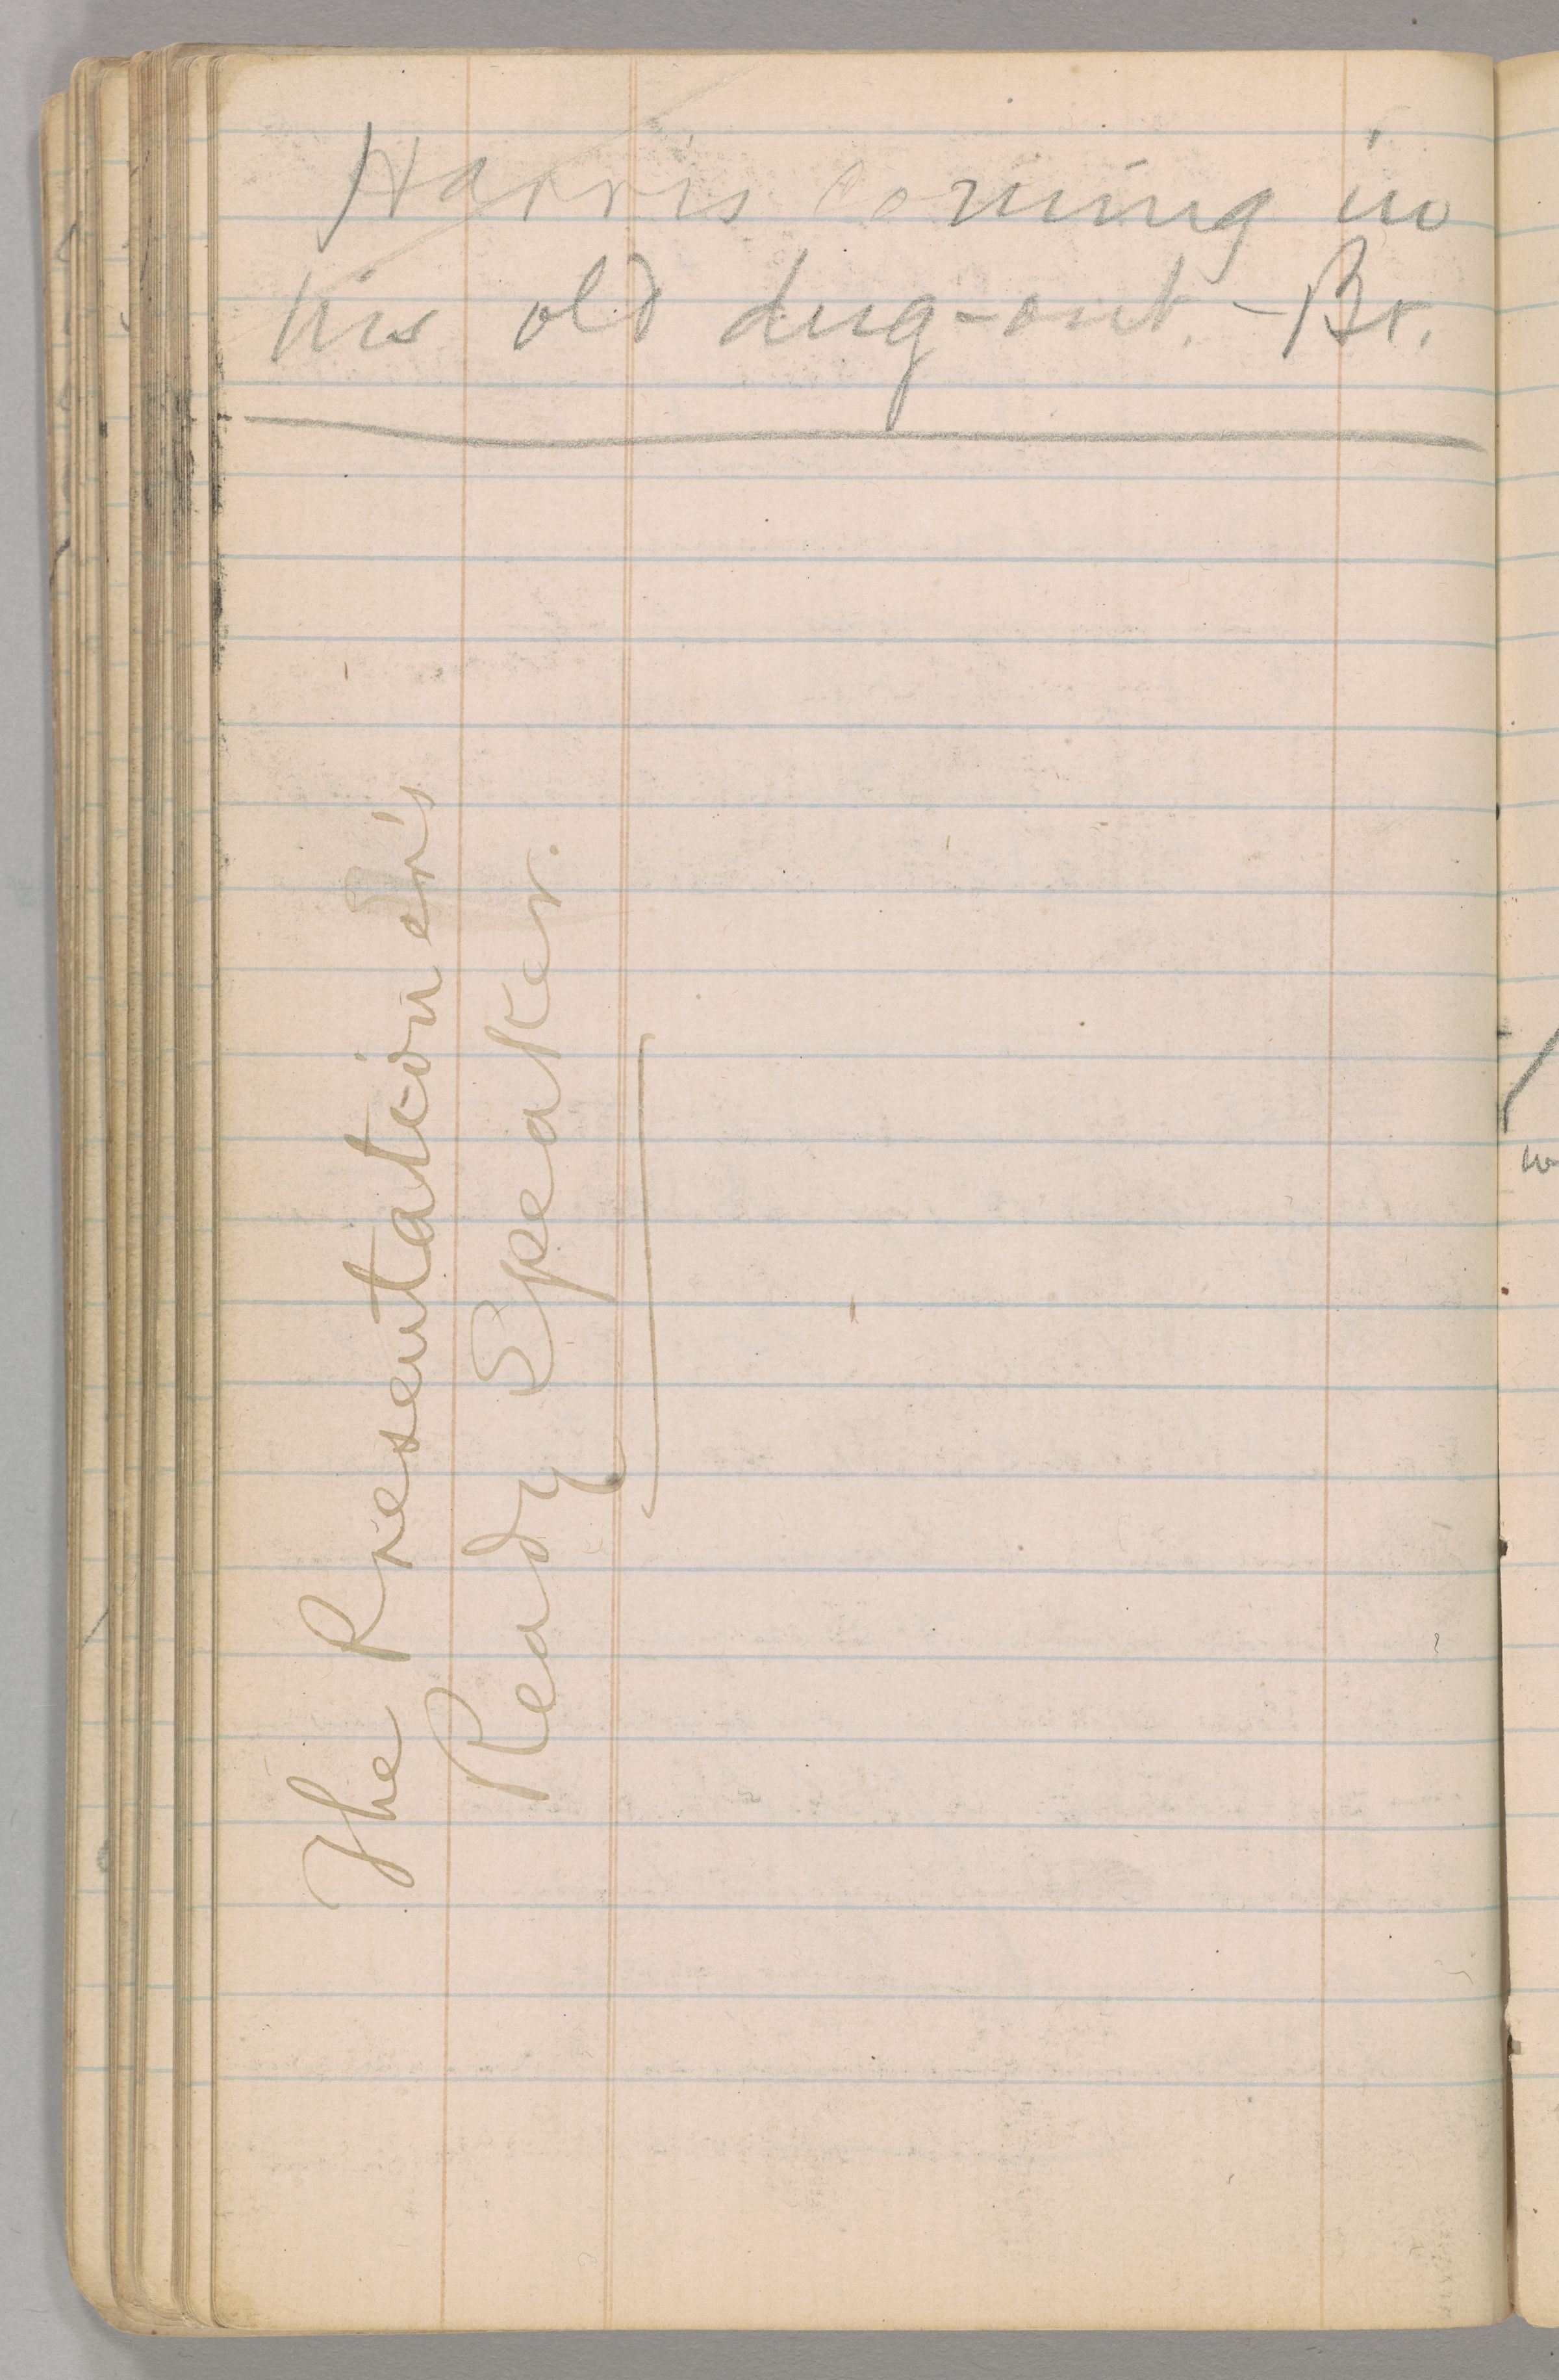 Harris coming in
his old dug-out. - Br.
The Presentationer's
Ready Speaker.